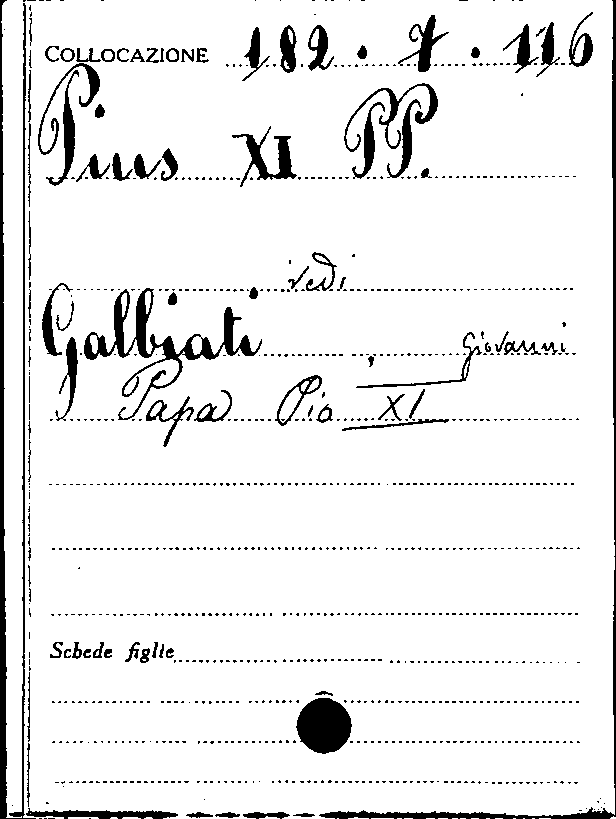 COLLOCAZIONE 182 . 7 . 116
Pius XI PP.
vedi
Galbiati, Giovanni
Papa Pio XI
Schede figlie